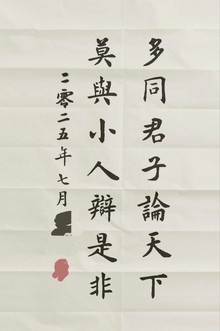 多同君子論天下
莫與小人辯是非
二零二五年七月